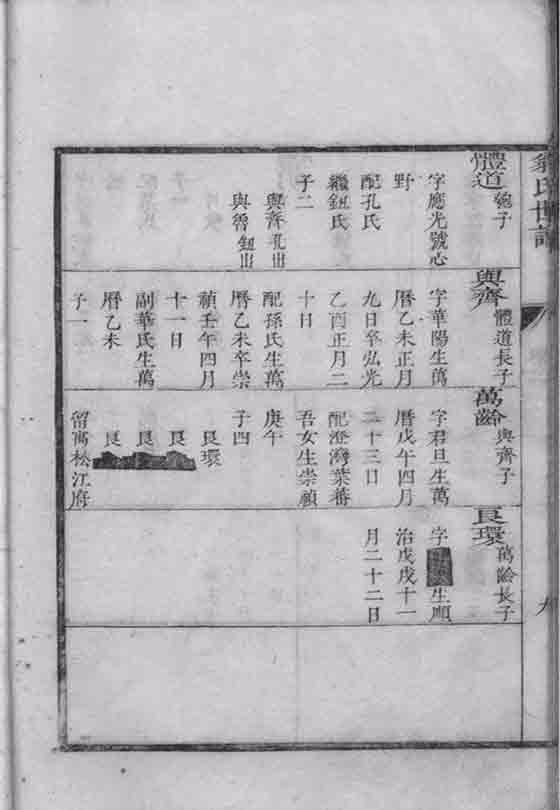 氏世譜
九
體道
字應光號心
野
配孔氏
繼鈕氏
子二
與齊 孔出
與 鈕出
與齊 體道長子
字華陽生萬
曆乙未正月
九日卒弘光
乙酉正月二
十日
配孫氏生萬
曆乙未卒崇
禎壬午四月
十一日
副華氏生萬
曆乙未
子一
萬齡 與齊子
字君旦生萬
曆戊午四月
二十三日
配澄灣葉蕃
吾女生崇禎
庚午
子四
良環
良
良
良
留寓松江府
良環 萬齡長子
字
生順
治戊戌十一
月二十二日